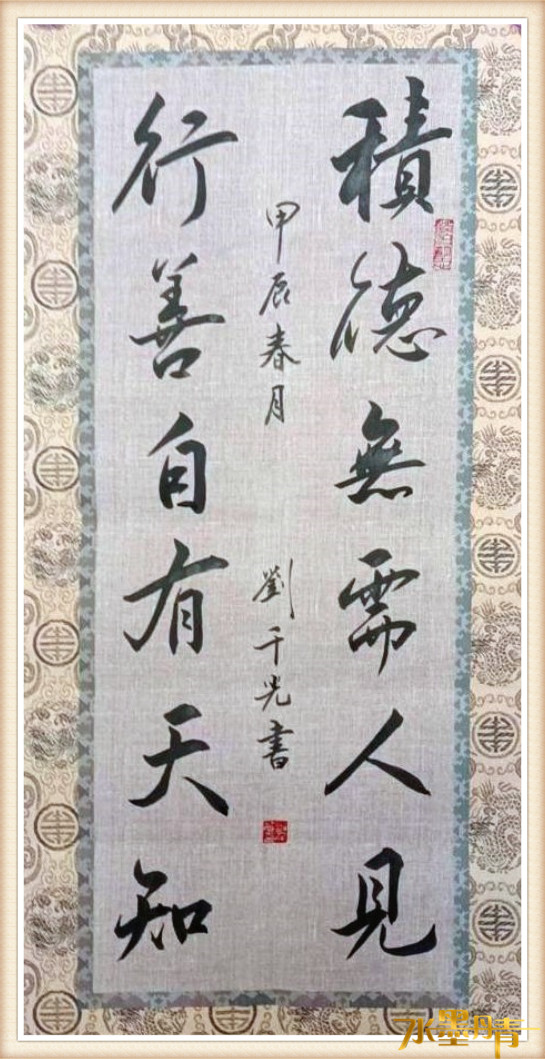 積德無需人見
行善自有天知
甲辰春月
劉千光書
水墨丹青